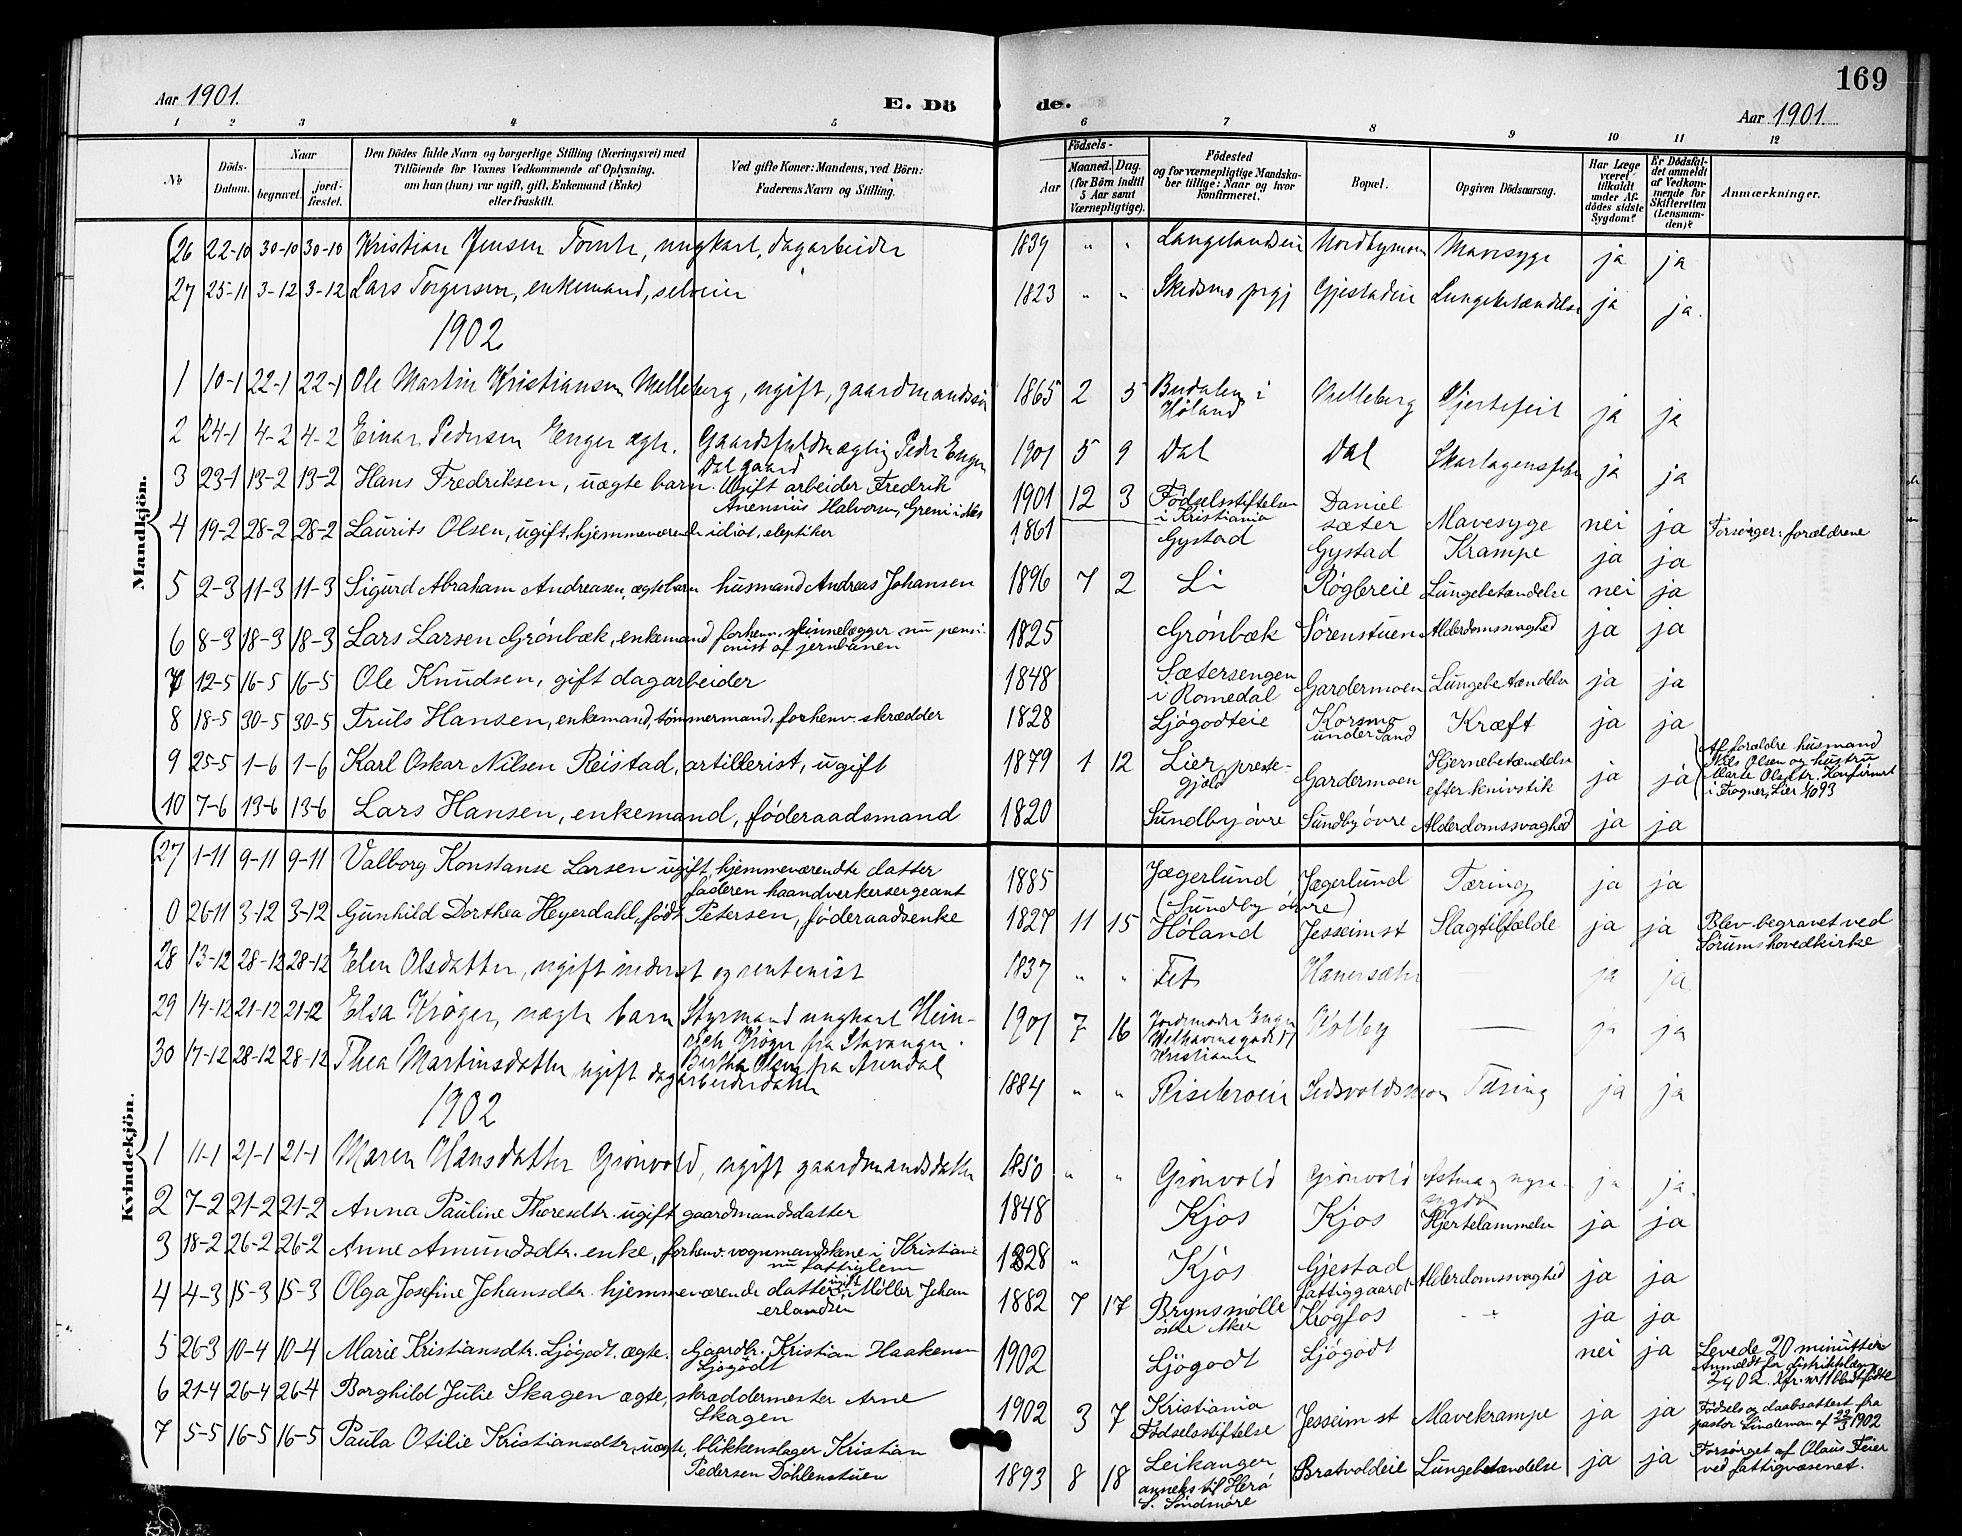 169
Aar 1901.
E. Dö de.
Aar 1901.
1 2 3 4 5 6 7 8 9 10 11 12
No
Döds-Datum.
Naar
begravet.
jord-fæstet.
Den Dödes fulde Navn og borgerlige Stilling (Næringsvei) med
Tilföiende for Voxnes Vedkommende af Oplysning,
om han (hun) var ugift, gift, Enkemand (Enke)
eller fraskilt.
Ved gifte Koner: Mandens, ved Börn:
Faderens Navn og Stilling.
Födsels-
Aar
Maaned. Dag.
(for Börn indtil
5 Aar samt
Værnepligtige).
Födested
og for værnepligtige Mandska-
ber tillige: Naar og hvor
konfirmeret.
Bopæl.
Opgiven Dödsaarsag.
Har Læge
været
tilkaldt
under Af-
dödes sidste
Sygdom?
Er Dödsfal-
det anmeldt
af Vedkom-
mende for
Skifteretten
(Lensman-
den)?
Anmærkninger.
Mandkjön.
26 22-10 30-10 30-10 Kristian Jensen Tomte, ungkarl, dagarbeider 1839 " " Langelandseie Nordbymoen Mavesyge ja ja
27 25-11 3-12 3-12 Lars Torgersen, enkemand, selveier 1823 " " Skedsmo prgj Gjestadeie Lungebetændelse ja ja.
1902
1 10-1 22-1 22-1 Ole Martin Kristiansen Melleberg, ugift, gaardmandssön 1865 2 5 Burdalen i Höland Melleberg Hjertefeil ja ja
2 24-1 4-2 4-2 Einar Pedersen Enger ægte. Gaardsfuldmægtig Peder Enger Dal gaard 1901 5 9 Dal Dal Skarlagensfeber ja ja
3 23-1 13-2 13-2 Hans Fredriksen, uægte barn. Ugift arbeider Fredrik Anensius Halvorsen, Greni i Nes 1901 12 3 Födselsstiftelsen i Kristiania Daniel sæter Mavesyge nei ja Forsörger: forældrene
4 19-2 28-2 28-2 Laurits Olsen, ugift, hjemmeværende idiot, eleptiker 1861 Gystad Gystad Krampe ja ja
5 2-3 11-3 11-3 Sigurd Abraham Andreasen, ægte barn husmand Andreas Johansen 1896 7 2 Li Rögbreie Lungebetændelse nei ja
6 8-3 18-3 18-3 Lars Larsen Grönbæk, enkemand forhenv. skinnelægger nu pensionist af jernbanen 1825 Grönbæk Sörenstuen Alderdomssvaghed ja ja
7 12-5 16-5 16-5 Ole Knudsen, gift dagarbeider 1848 Sætersengen i Romedal Gardermoen Lungebetændelse ja ja
8 18-5 30-5 30-5 Truls Hansen, enkemand, tömmermand, forhenv. skrædder 1828 Ljögodteie Korsmo under Sand Kræft ja ja
9 25-5 1-6 1-6 Karl Oskar Nilsen Reistad, artillerist, ugift 1879 1 12 Lier preste-gjeld Gardermoen Hjernebetændelse efter knivstik ja ja Af forældre husmand Nils Olsen og hustru Marte Olsdtr. Konfirmert i Frogner, Lier 93
10 7-6 13-6 13-6 Lars Hansen, enkemand, föderaadsmand 1820 Sundby övre Sundby övre Alderdomssvaghed ja ja
Kvindekjön.
27 1-11 9-11 9-11 Valborg Konstanse Larsen ugift, hjemmeværende datter faderen haandverkersergeant 1885 Jægerlund (Sundby övre) Jægerlund Tæring ja ja
0 26-11 3-12 3-12 Gunhild Dorthea Heyerdahl, födt Petersen, föderaadsenke 1827 11 15 Höland Jesseim st Slagtilfælde ja ja Blev begravet ved Sörums hovedkirke
28 13-12 28-12 28-12 Elen Olsdatter, ugift inderst og rentenist 1837 " " Fet Hanersæter ja ja.
29 14-12 21-12 21-12 Elsa Kröger, uægte barn Styrmand ungkarl Hein-rich Kröger fra Stavanger. Bertha Olsen fra Arendal 1901 7 16 Jordemoder Enger Welhavensgade 17 Kristiania Kolby — ja ja
30 17-12 28-12 28-12 Thea Martinsdatter ugift dagarbeiderdatter 1884 " " Risebroeie Eidsvoldsmoen Tæring ja ja
1902
1 11-1 21-1 21-1 Maren Hansdatter Grönvold, ugift gaardmandsdatter 1850 " " Grönvold Grönvold Astma og nyre-sygdom ja ja.
2 7-2 21-2 21-2 Anna Pauline Thoresdtr. ugift gaardmandsdatter 1848 Kjos Kjos Hjertelammelse ja ja
3 18-2 26-2 26-2 Anne Amundsdtr. enke, forhenv. vognmandskone i Kristiania nu fattiglem 1828 " Kjos Gjestad fattiggaard Alderdomssvaghed ja ja
4 4-3 15-3 15-3 Olga Josefine Johansdtr. hjemmeværende datter ugift Möller Johan Erlandsen 1882 7 17 Brynsmölle östre Aker Krogfos " ja ja
5 26-3 10-4 10-4 Marie Kristiansdtr. Ljögodt ægte. Gaardbr. Kristian Haakensen Ljögodt 1902 Ljögodt Ljögodt nei ja Levede 20 minutter Anmeldt for distriktslægen
6 21-4 26-4 26-4 Borghild Julie Skagen ægte, skræddermester Arne Skagen 1902 3 7 Kristiania Födselsstiftelse Jesseim st Mavekrampe ja ja Födsels og daabsattest fra pastor Lindeman af 22/3 1902
7 5-5 16-5 16-5 Paula Otilie Kristiansdtr. uægte, blikkenslager Kristian Pedersen Döhlenstuen 1893 8 18 Leikanger anneks til Herö S. Söndmöre Bratvoldeie Lungebetændelse ja ja Forsörget af Olaus Feier ved fattigvæsenet.